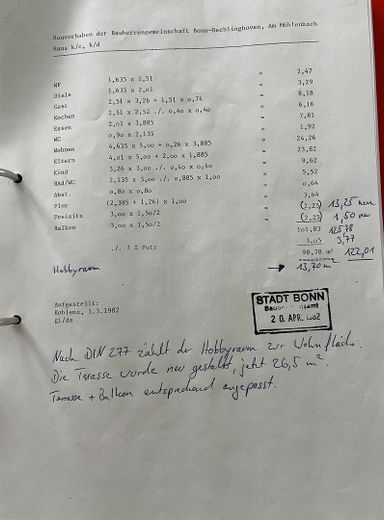 Bauvorhaben der Bauherrengemeinschaft Bonn-Bechlinghoven, Am Mühlenbach
Haus k/c, k/d
WF 1,635 x 1,51 = 2,47
Diele 1,635 x 2,01 = 3,29
Gast 2,51 x 3,26 + 1,51 x 0,74 = 8,18
Kochen 2,51 x 2,52 ./. 0,40 x 0,40 = 6,16
Essen 2,01 x 3,885 = 7,81
WC 0,90 x 2,135 = 1,92
Wohnen 4,635 x 5,00 + 0,26 x 3,885 = 24,26
Eltern 4,01 x 5,00 + 2,00 x 1,885 = 23,82
Kind 3,26 x 3,00 ./. 0,40 x 0,40 = 9,62
Bad/WC 2,135 x 3,00 ./. 0,885 x 1,00 = 5,52
Abst. 0,80 x 0,80 = 0,64
Flur (2,385 + 1,26) x 1,00 = 3,64
Freisitz 3,00 x 1,50/2 = (2,25) 13,25 neu
Balkon 3,00 x 1,50/2 = (2,25) 1,50 neu
101,83 125,78
./. 3 % Putz 3,05 3,77
98,78 m² 122,01
Hobbyraum → 13,70 m²
Aufgestellt:
Koblenz, 1.3.1982
gi/da
STADT BONN
20. APR. 1982
Nach DIN 277 zählt der Hobbyraum zur Wohnfläche.
Die Terasse wurde neu gestaltet, jetzt 26,5 m².
Terrasse + Balkon entsprechend angepasst.